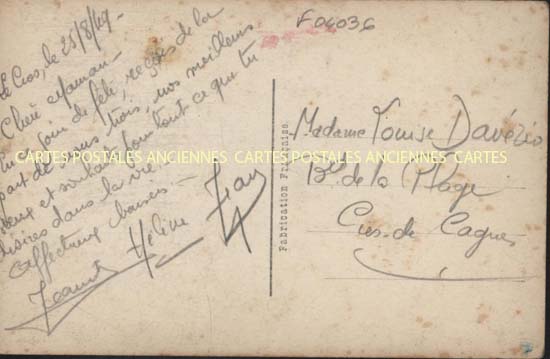 Le Cros, le 25/8/49.
Chère Maman
En ce soir de fête, reçois de la
part de nous trois, nos meilleurs
vœux et souhaits pour tout ce que tu
désires dans la vie.
Affectueux baisers
Hélène Jean
F 06036
Madame Louise
Bd de la Plage
Cros-de Cagnes
Fabrication Française
CARTES POSTALES ANCIENNES CARTES POSTALES ANCIENNES CARTES